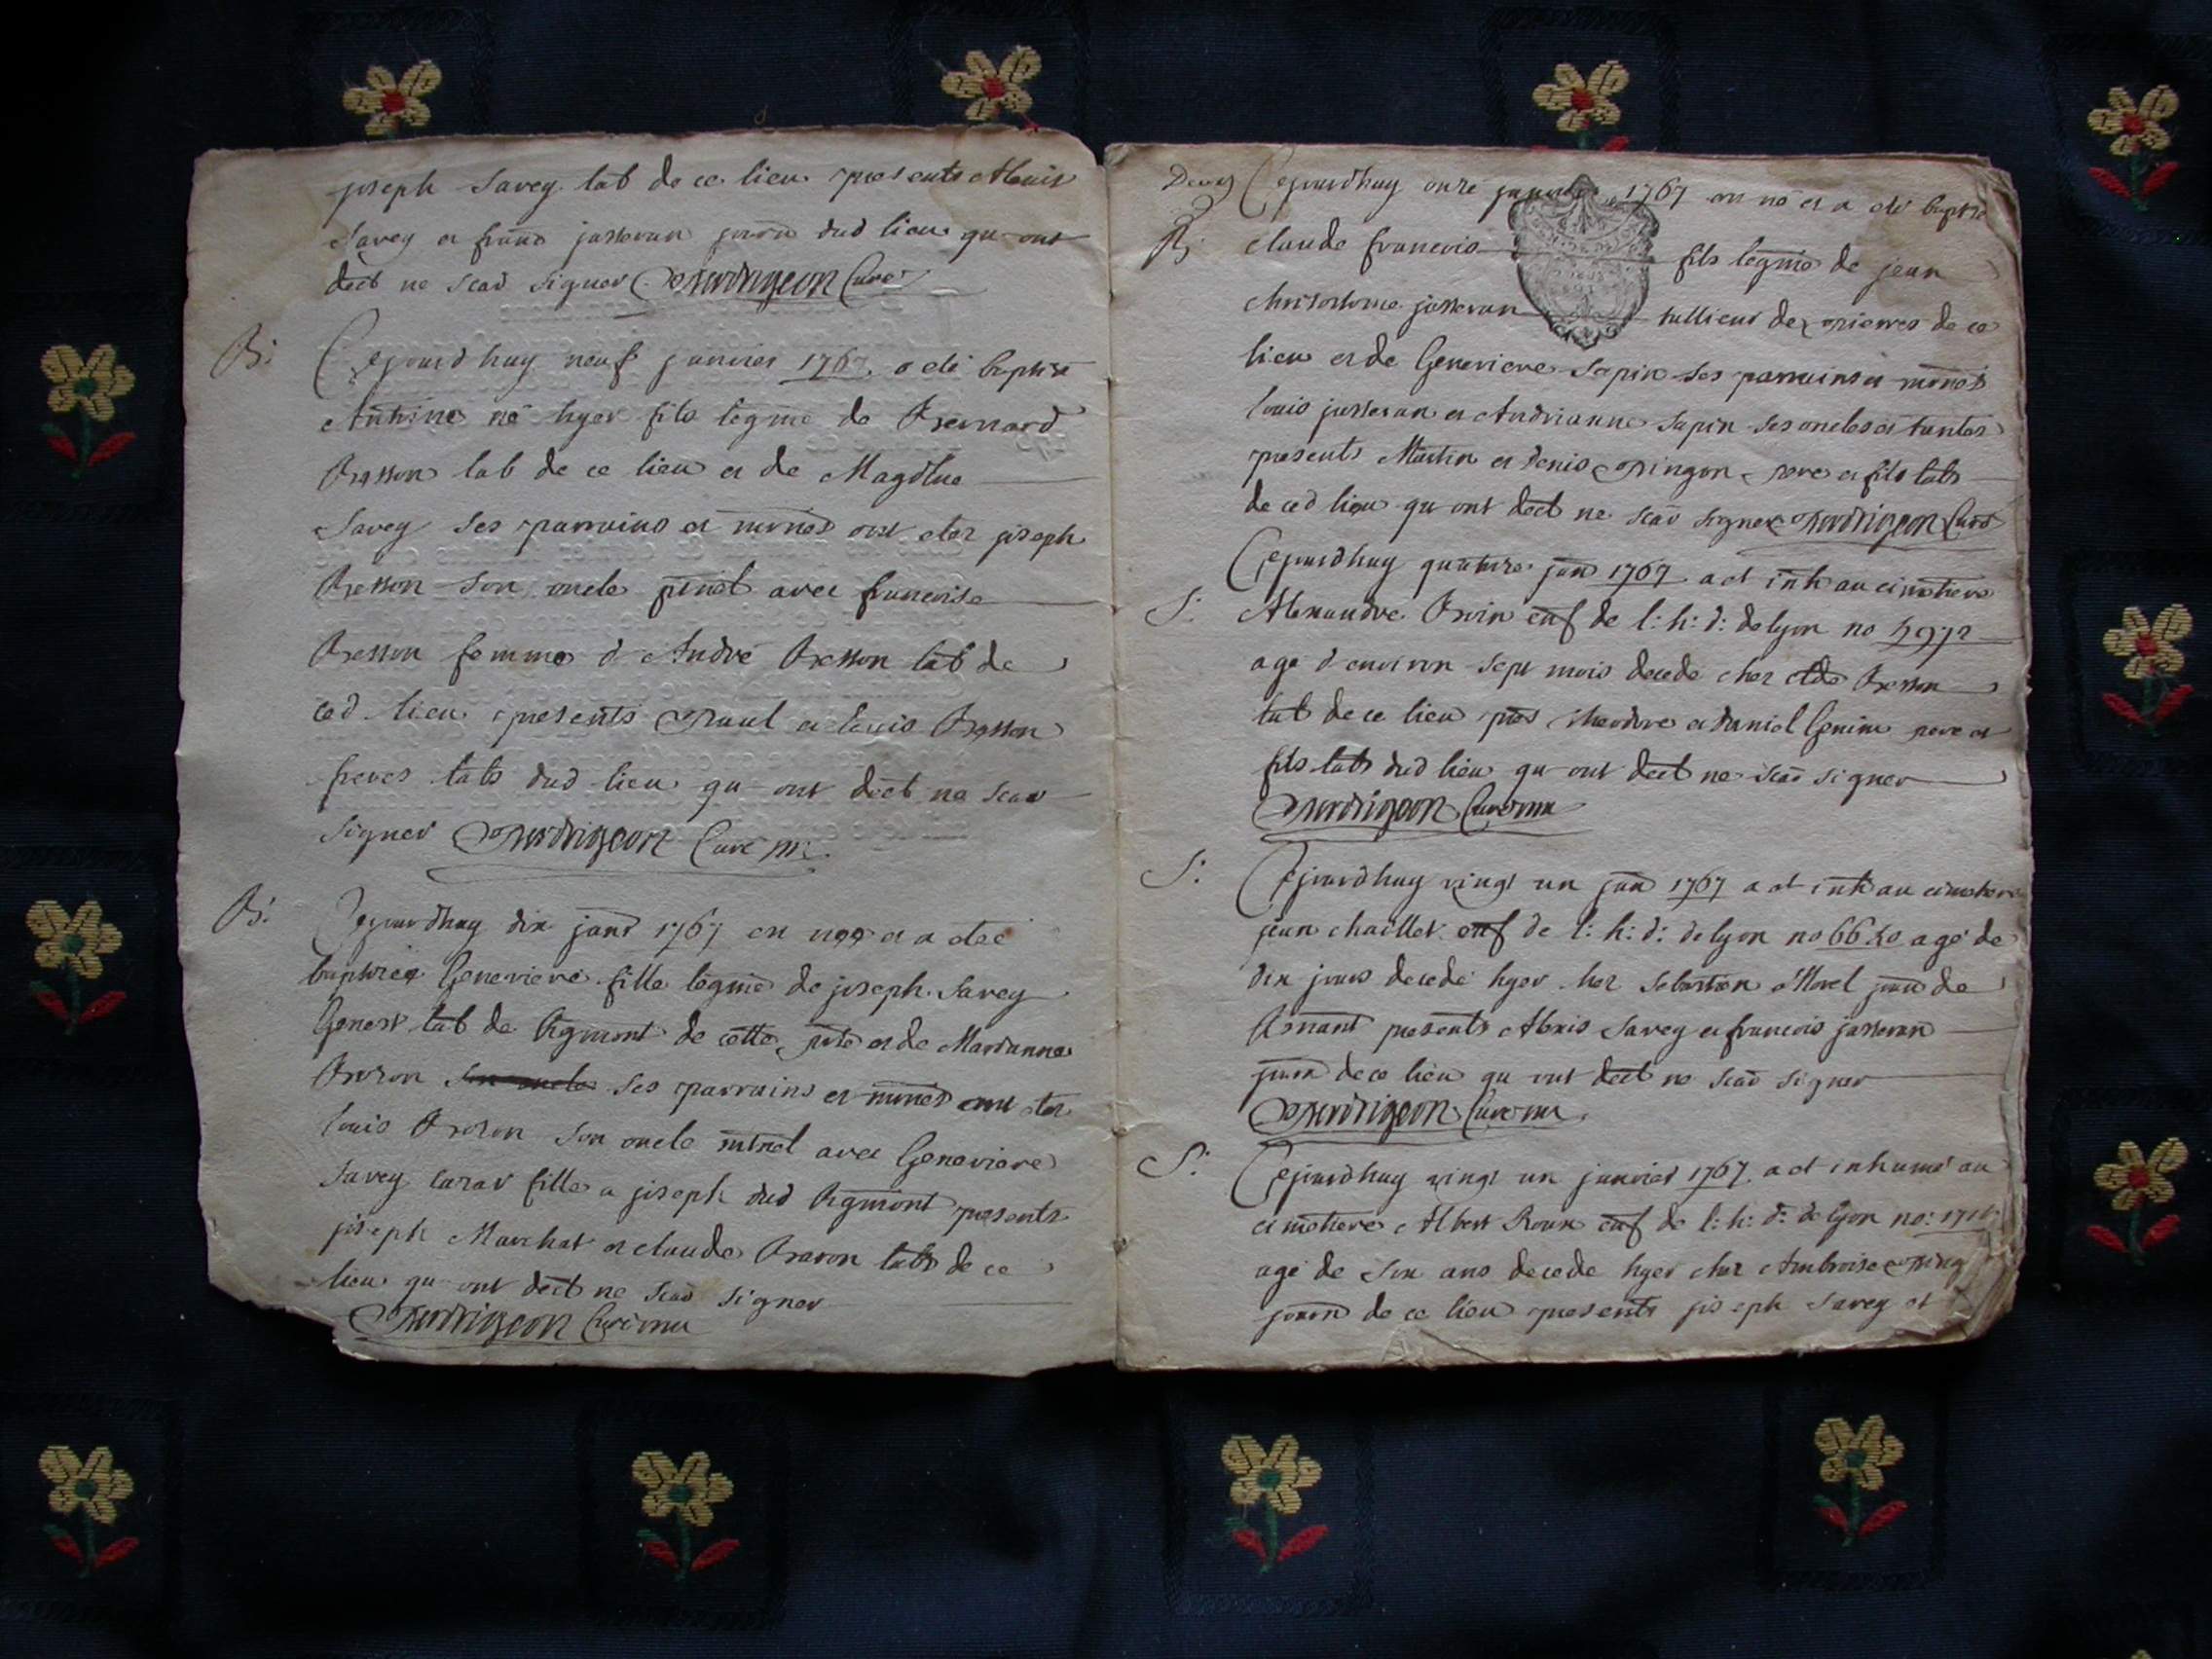 joseph Savey lab de ce lieu presents Alexis
Savey et franc josseran journ dud lieu qu ont
declt ne scav signer Perdrigeon Curé
B: Cejourdhuy neuf janvier 1767 a eté baptisé
Antoine né hyer fils legme de Bernard
Besson lab de ce lieu et de Magdlne
Savey ses parrains et mrnes ont etez joseph
Besson son oncle ptrnel avec francoise
Besson femme d André Besson lab de
ced lieu presents Paul et louis Besson
freres labs dud lieu qu ont declt ne scav
signer Perdrigeon Curé
B: Cejourdhuy dix janr 1767 en née et a eteé
baptiseé Genevieve fille legme de joseph Savey
Genest lab de de cette prte et de Marianne
Brozon ses parrains et mrnes ont etez
louis Brozon son oncle mtrnel avec Genevieve
Savey fille a joseph dud presents
joseph Marchat et claude labs de ce
lieu qu ont declt ne scav signer
Perdrigeon Curé
Deux Cejourdhuy onze janvier 1767 en né et a eté baptse
B: claude francois fils legme de jean
chrisostome josseran tallieur de pierres de ce
lieu et de Genevieve Sapin ses parrains et mrnes
louis josseran et Andrianne Sapin ses oncles et tantes
presents Martin et denis Pingon pere et fils labs
de ced lieu qu ont declt ne scav signer Perdrigeon Curé
Cejourdhuy quatorze janr 1767 a et inh au cimetiere
S: Alexandre enf de l: h: d: de lyon no
agé d environ sept mois decedé chez Cde Besson
lab de ce lieu pres theodore et daniel Genin pere et
fils labs dud lieu qu ont declt ne scav signer
Perdrigeon Curé
S: Cejourdhuy vingt un janr 1767 a et inh au cimetiere
jean chaillet enf de l: h: d: de lyon no agé de
dix jours decedé hyer chez Sebastien Morel journ de
presents Alexis Savey et francois josseran
journ de ce lieu qu ont declt ne scav signer
Perdrigeon Curé
S: Cejourdhuy vingt un janvier 1767 a et inhumé au
cimetiere Albert Roux enf de l: h: d: de lyon no:
agé de ans decedé hyer chez Ambroise
journ de ce lieu presents joseph Savey et